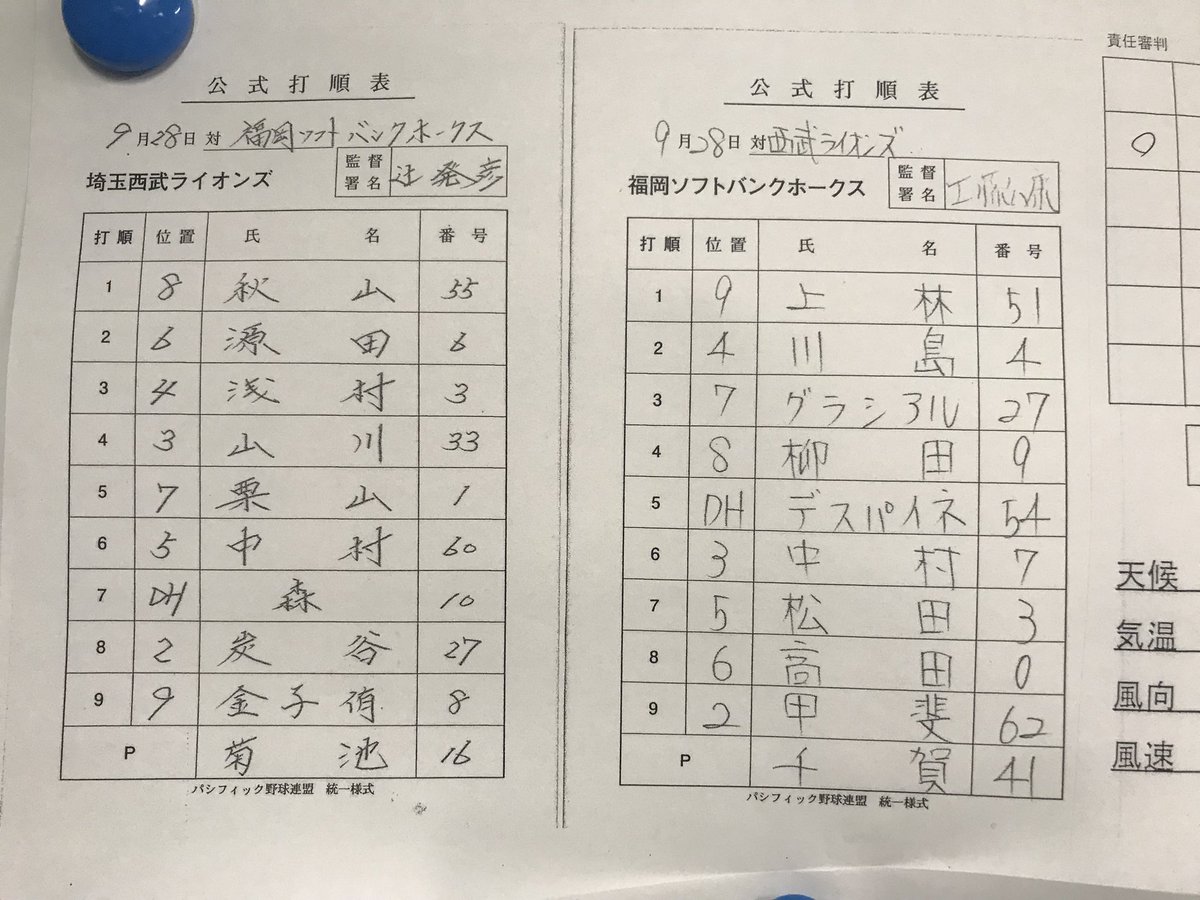 公式打順表
9月28日 対 福岡ソフトバンクホークス
埼玉西武ライオンズ 監督署名 辻発彦
打順 位置 氏名 番号
1 8 秋山 55
2 6 源田 6
3 4 浅村 3
4 3 山川 33
5 7 栗山 1
6 5 中村 60
7 DH 森 10
8 2 炭谷 27
9 9 金子侑 8
P 菊池 16
パシフィック野球連盟 統一様式
公式打順表
9月28日 対 西武ライオンズ
福岡ソフトバンクホークス 監督署名 工藤公康
打順 位置 氏名 番号
1 9 上林 51
2 4 川島 4
3 7 グラシヨル 27
4 8 柳田 9
5 DH デスパイネ 54
6 3 中村 7
7 5 松田 3
8 6 高田 0
9 2 甲斐 62
P 千賀 41
パシフィック野球連盟 統一様式
責任審判
0
天候
気温
風向
風速